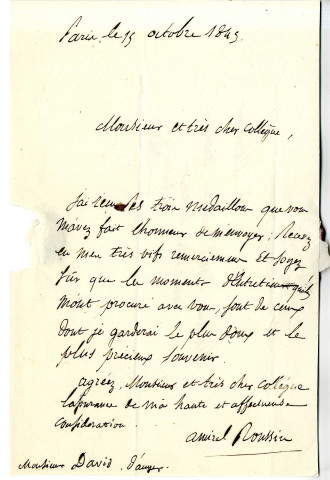 Paris, le 15 octobre 1843.
Monsieur et très cher Collègue,
J'ai reçu les trois médaillons que vous
m'avez fait l'honneur de m'envoyer ; Recevez
en mes très vifs remerciemens et soyez
sûr que les momens d'Entretien qu'ils
m'ont procuré avec vous, sont de ceux
dont je garderai le plus doux et le
plus précieux souvenir.
agréez, Monsieur et très cher Collègue
l'assurance de ma haute et affectueuse
considération.
amiral Roussin
Monsieur David d'angers.